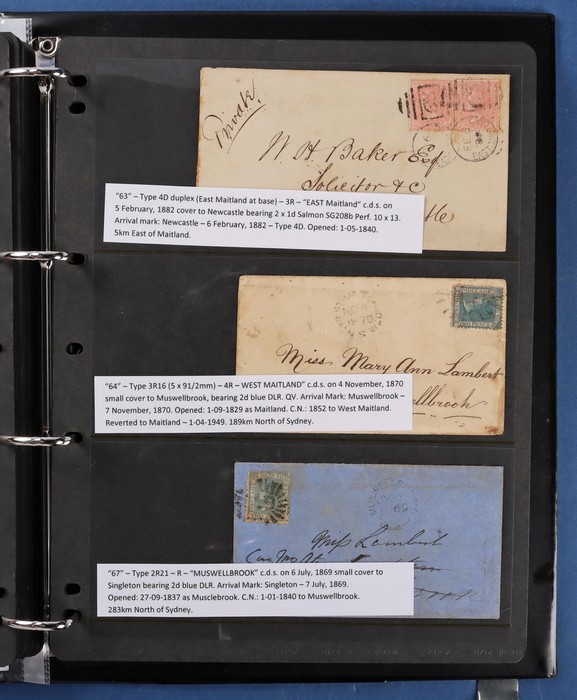 Private.
W. H. Baker Esq
Solicitor & C
tle
"63" – Type 4D duplex (East Maitland at base) – 3R – "EAST Maitland" c.d.s. on
5 February, 1882 cover to Newcastle bearing 2 x 1d Salmon SG208b Perf. 10 x 13.
Arrival mark: Newcastle – 6 February, 1882 – Type 4D. Opened: 1-05-1840.
5km East of Maitland.
Miss Mary Ann Lambert
llbrook
"64" – Type 3R16 (5 x 91/2mm) – 4R – WEST MAITLAND" c.d.s. on 4 November, 1870
small cover to Muswellbrook, bearing 2d blue DLR. QV. Arrival Mark: Muswellbrook –
7 November, 1870. Opened: 1-09-1829 as Maitland. C.N.: 1852 to West Maitland.
Reverted to Maitland – 1-04-1949. 189km North of Sydney.
Miss Lambert
"67" – Type 2R21 – R – "MUSWELLBROOK" c.d.s. on 6 July, 1869 small cover to
Singleton bearing 2d blue DLR. Arrival Mark: Singleton – 7 July, 1869.
Opened: 27-09-1837 as Musclebrook. C.N.: 1-01-1840 to Muswellbrook.
283km North of Sydney.